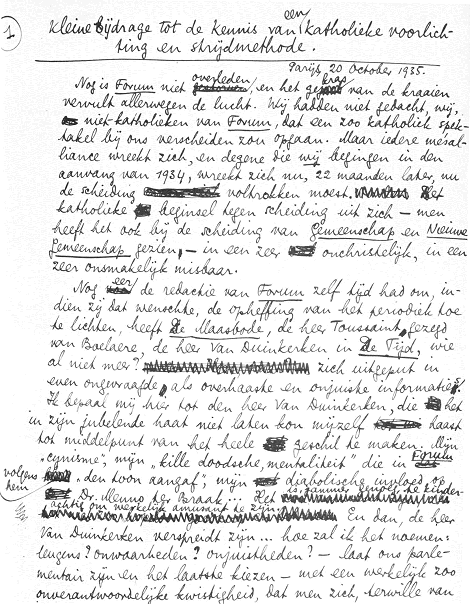 1
Kleine bijdrage tot de kennis van een katholieke voorlich-
ting en strijdmethode.
Parijs, 20 October 1935.
Nog is Forum niet overleden, en het gekras van de kraaien
vervult allerwegen de lucht. Wij hadden niet gedacht, wij,
niet-katholieken van Forum, dat een zoo katholiek spek-
takel bij ons verscheiden zou opgaan. Maar iedere mésal-
liance wreekt zich, en degene die wij begingen in den
aanvang van 1934, wreekt zich nu, 22 maanden later, nu
de scheiding voltrokken moest. Het
katholieke beginsel tegen scheiding uit zich – men
heeft het ook bij de scheiding van Gemeenschap en Nieuwe
Gemeenschap gezien, – in een zeer onchristelijk, in een
zeer onsmakelijk misbaar.
Nog eer de redactie van Forum zelf tijd had om, in-
dien zij dat wenschte, de opheffing van het periodiek toe
te lichten, heeft De Maasbode, de heer Toussaint, gezegd
van Boelaere, de heer Van Duinkerken in De Tijd, wie
al niet meer? zich uitgeput in
even ongevraagde, als overhaaste en onjuiste informaties.
Ik bepaal mij hier tot den heer Van Duinkerken, die het
in zijn jubelende haat niet laten kon mijzelf haast
tot middelpunt van het heele geschil te maken. Mijn
"cynisme", mijn "kille doodsche mentaliteit" die in Forum
volgens hem "den toon aangaf", mijn diabolische invloed op
Dr. Menno ter Braak... Het is jammer genoeg te kinder-
achtig om werkelijk amusant te zijn. En dan, de heer
Van Duinkerken verspreidt zijn... hoe zal ik het noemen:
leugens? onwaarheden? onjuistheden? – laat ons parle-
mentair zijn en het laatste kiezen – met een werkelijk zoo
onverantwoordelijke kwistigheid, dat men zich, terwille van